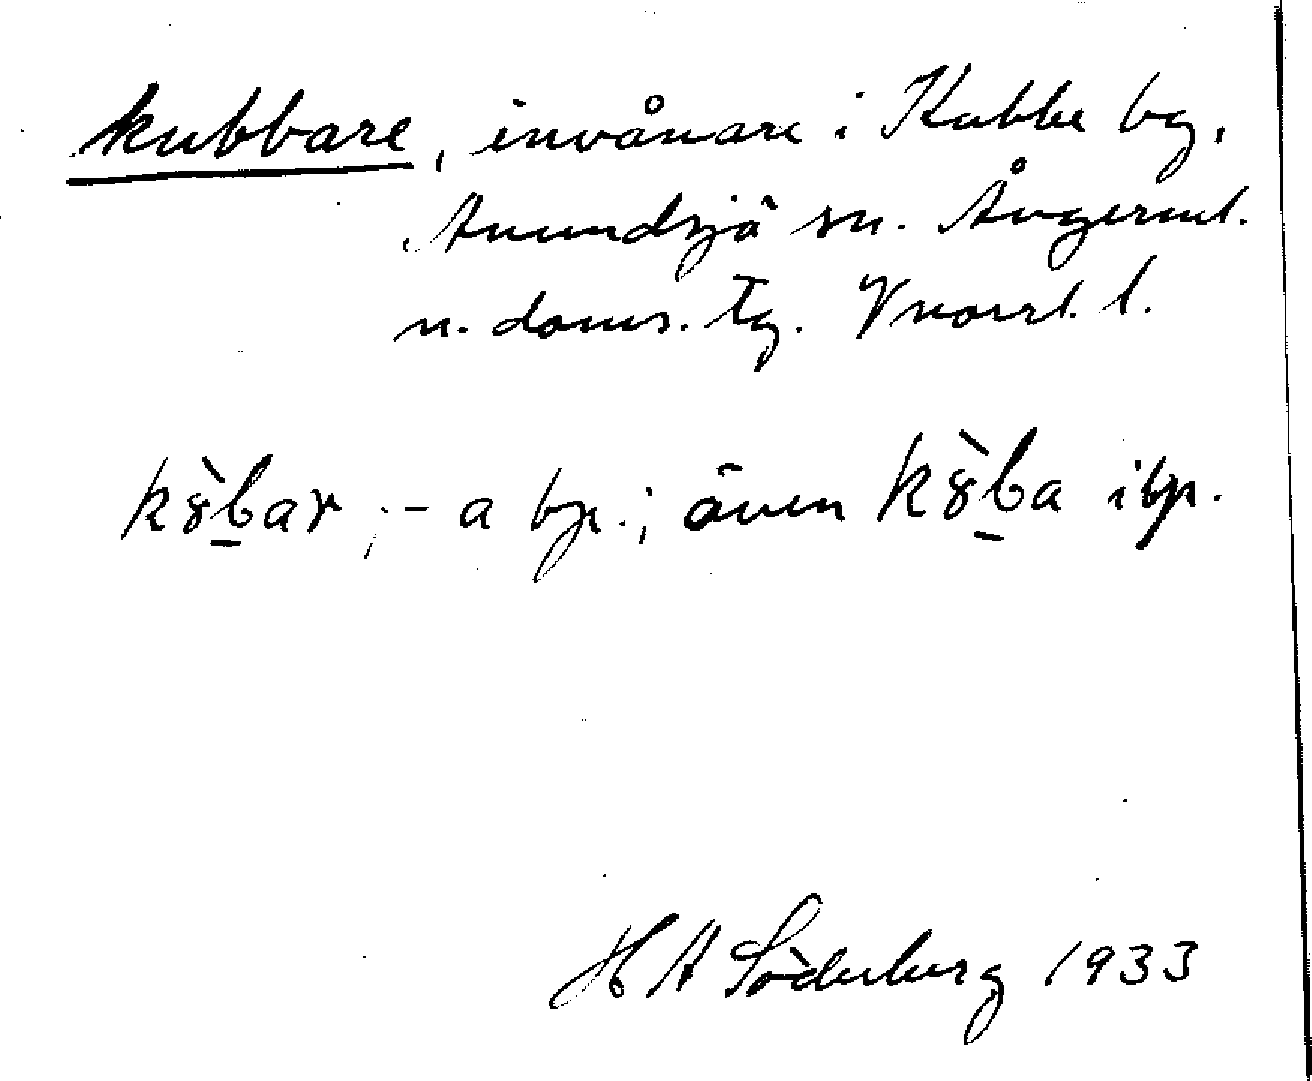 kubbare, invånare i Kubbe by,
Anundsjö sn. Ångerml.
n. doms. tg. Vnorrl. l.
kȣ̀b̲ar, -a bp.; även kȣ̀b̲a i bp.
H A Söderberg 1933